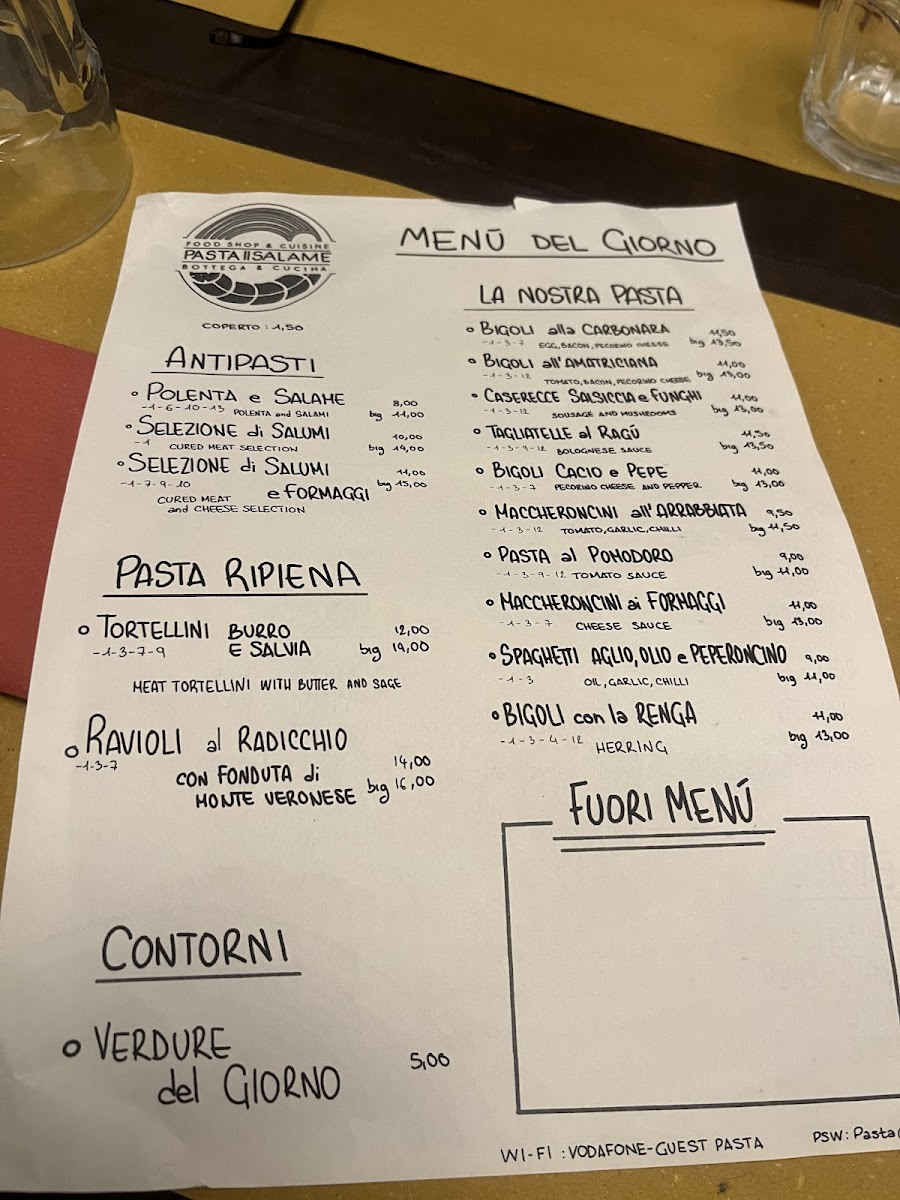 FOOD SHOP & CUISINE
PASTA II SALAME
BOTTEGA & CUCINA
COPERTO : 1,50
MENÙ DEL GIORNO
ANTIPASTI
° POLENTA e SALAME 8,00
-1-6-10-13 POLENTA and SALAMI big 11,00
° SELEZIONE di SALUMI 10,00
-1 CURED MEAT SELECTION big 14,00
° SELEZIONE di SALUMI 11,00
-1-7-9-10 e FORMAGGI big 15,00
CURED MEAT
and CHEESE SELECTION
PASTA RIPIENA
° TORTELLINI BURRO 12,00
-1-3-7-9 E SALVIA big 14,00
MEAT TORTELLINI WITH BUTTER AND SAGE
° RAVIOLI al RADICCHIO
-1-3-7 CON FONDUTA di 14,00
MONTE VERONESE big 16,00
CONTORNI
° VERDURE
del GIORNO 5,00
LA NOSTRA PASTA
° BIGOLI alla CARBONARA 11,50
-1-3-7 EGG, BACON, PECORINO CHEESE big 13,50
° BIGOLI all'AMATRICIANA 11,00
-1-3-12 TOMATO, BACON, PECORINO CHEESE big 13,00
° CASERECCE SALSICCIA e FUNGHI 11,00
-1-3-12 SOUSAGE AND MUSHROOMS big 13,00
° TAGLIATELLE al RAGÚ 11,50
-1-3-9-12 BOLOGNESE SAUCE big 13,50
° BIGOLI CACIO e PEPE 11,00
-1-3-7 PECORINO CHEESE AND PEPPER big 13,00
° MACCHERONCINI all'ARRABBIATA 9,50
-1-3-12 TOMATO, GARLIC, CHILLI big 11,50
° PASTA al POMODORO 9,00
-1-3-9-12 TOMATO SAUCE big 11,00
° MACCHERONCINI ai FORMAGGI 11,00
-1-3-7 CHEESE SAUCE big 13,00
° SPAGHETTI AGLIO, OLIO e PEPERONCINO 9,00
-1-3 OIL, GARLIC, CHILLI big 11,00
° BIGOLI con la RENGA 11,00
-1-3-4-12 HERRING big 13,00
FUORI MENÚ
WI-FI : VODAFONE-GUEST PASTA PSW: Pasta